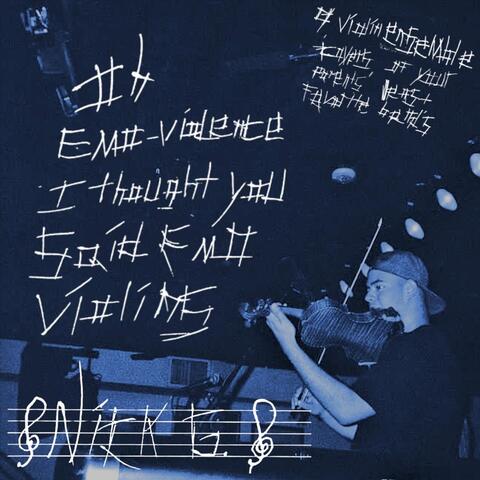 OH
EMO-violence
I thought you
SAid EMO
ViOliNS
& ViOliN eNSeMble
Covers of your
parents' least
Favorite bands
NiCK G.